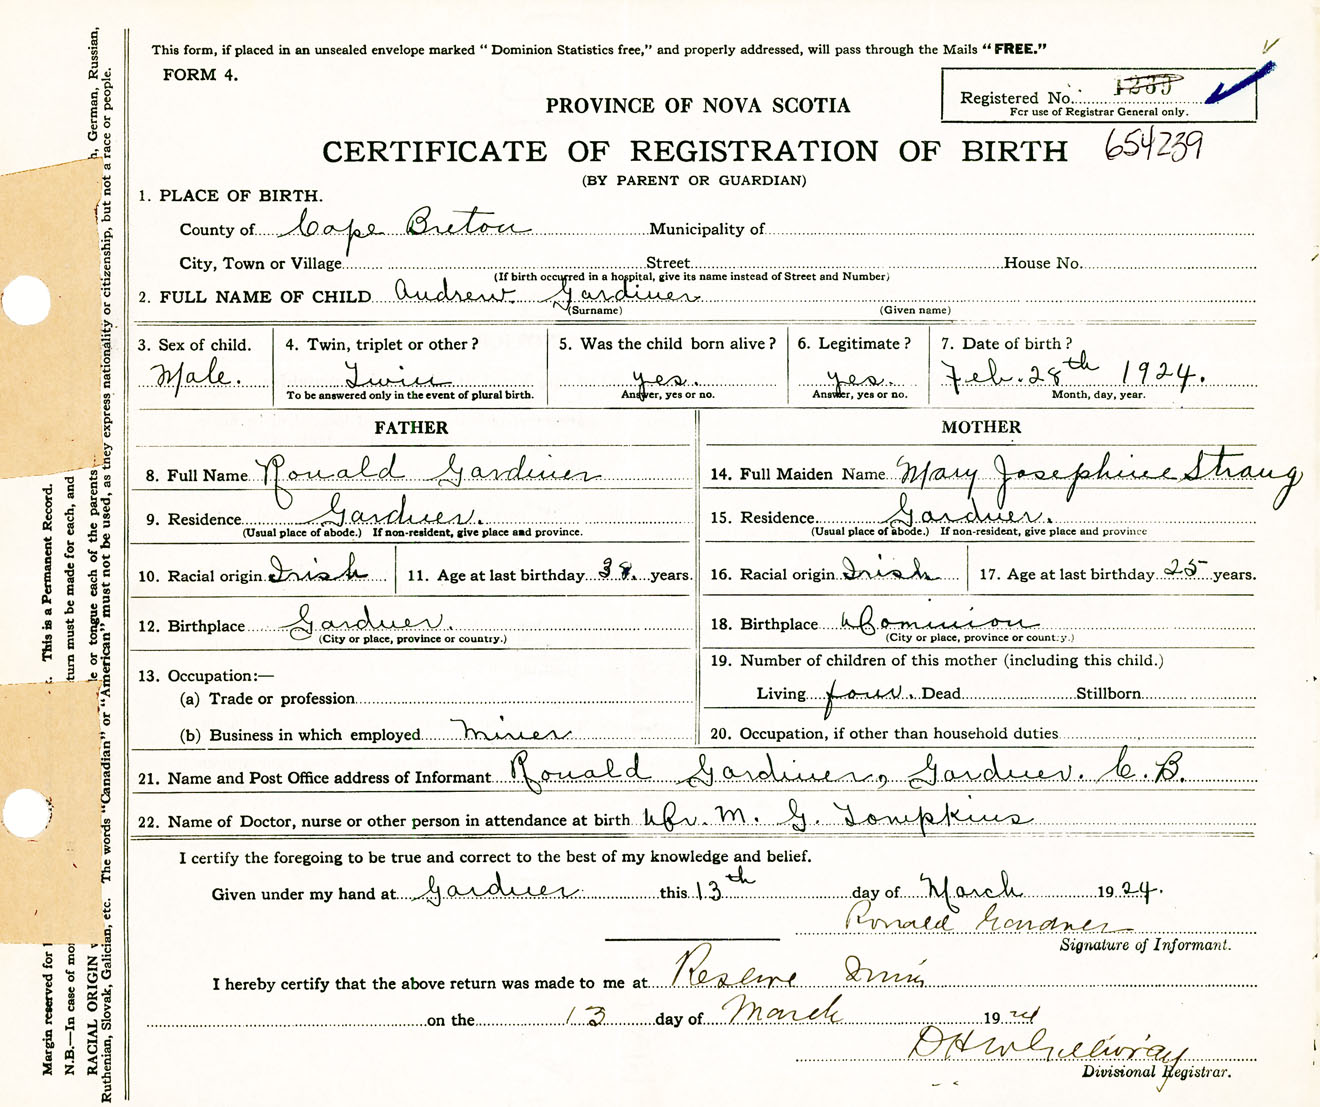 This form, if placed in an unsealed envelope marked “ Dominion Statistics free,” and properly addressed, will pass through the Mails “ FREE.”
FORM 4.
Registered No. 1235
For use of Registrar General only.
PROVINCE OF NOVA SCOTIA
CERTIFICATE OF REGISTRATION OF BIRTH 654239
(BY PARENT OR GUARDIAN)
1. PLACE OF BIRTH.
County of Cape Breton Municipality of
City, Town or Village Street House No.
(If birth occurred in a hospital, give its name instead of Street and Number)
2. FULL NAME OF CHILD Andrew Gardiner
(Surname) (Given name)
3. Sex of child. 4. Twin, triplet or other? 5. Was the child born alive? 6. Legitimate? 7. Date of birth?
Male. Twin yes. yes. Feb. 28th 1924.
To be answered only in the event of plural birth. Answer, yes or no. Answer, yes or no. Month, day, year.
FATHER MOTHER
8. Full Name Ronald Gardiner 14. Full Maiden Name Mary Josephine Strang
9. Residence Gardner. 15. Residence Gardner.
(Usual place of abode.) If non-resident, give place and province. (Usual place of abode.) If non-resident, give place and province
10. Racial origin Irish 11. Age at last birthday 38. years. 16. Racial origin Irish 17. Age at last birthday 25 years.
12. Birthplace Gardner. 18. Birthplace Dominion
(City or place, province or country.) (City or place, province or country.)
13. Occupation:— 19. Number of children of this mother (including this child.)
(a) Trade or profession Living four. Dead Stillborn
(b) Business in which employed Miner 20. Occupation, if other than household duties
21. Name and Post Office address of Informant Ronald Gardiner, Gardner. C. B.
22. Name of Doctor, nurse or other person in attendance at birth Dr. M. G. Tompkins
I certify the foregoing to be true and correct to the best of my knowledge and belief.
Given under my hand at Gardner this 13th day of March 1924.
Ronald Gardner
Signature of Informant.
I hereby certify that the above return was made to me at Reserve Mines
on the 13 day of March 1924
Divisional Registrar.
Margin reserved for This is a Permanent Record.
N.B.—In case of turn must be made for each, and
RACIAL ORIGIN e or tongue each of the parents German, Russian,
Ruthenian, Slovak, Galician, etc. The words “Canadian” or “American” must not be used, as they express nationality or citizenship, but not a race or people.